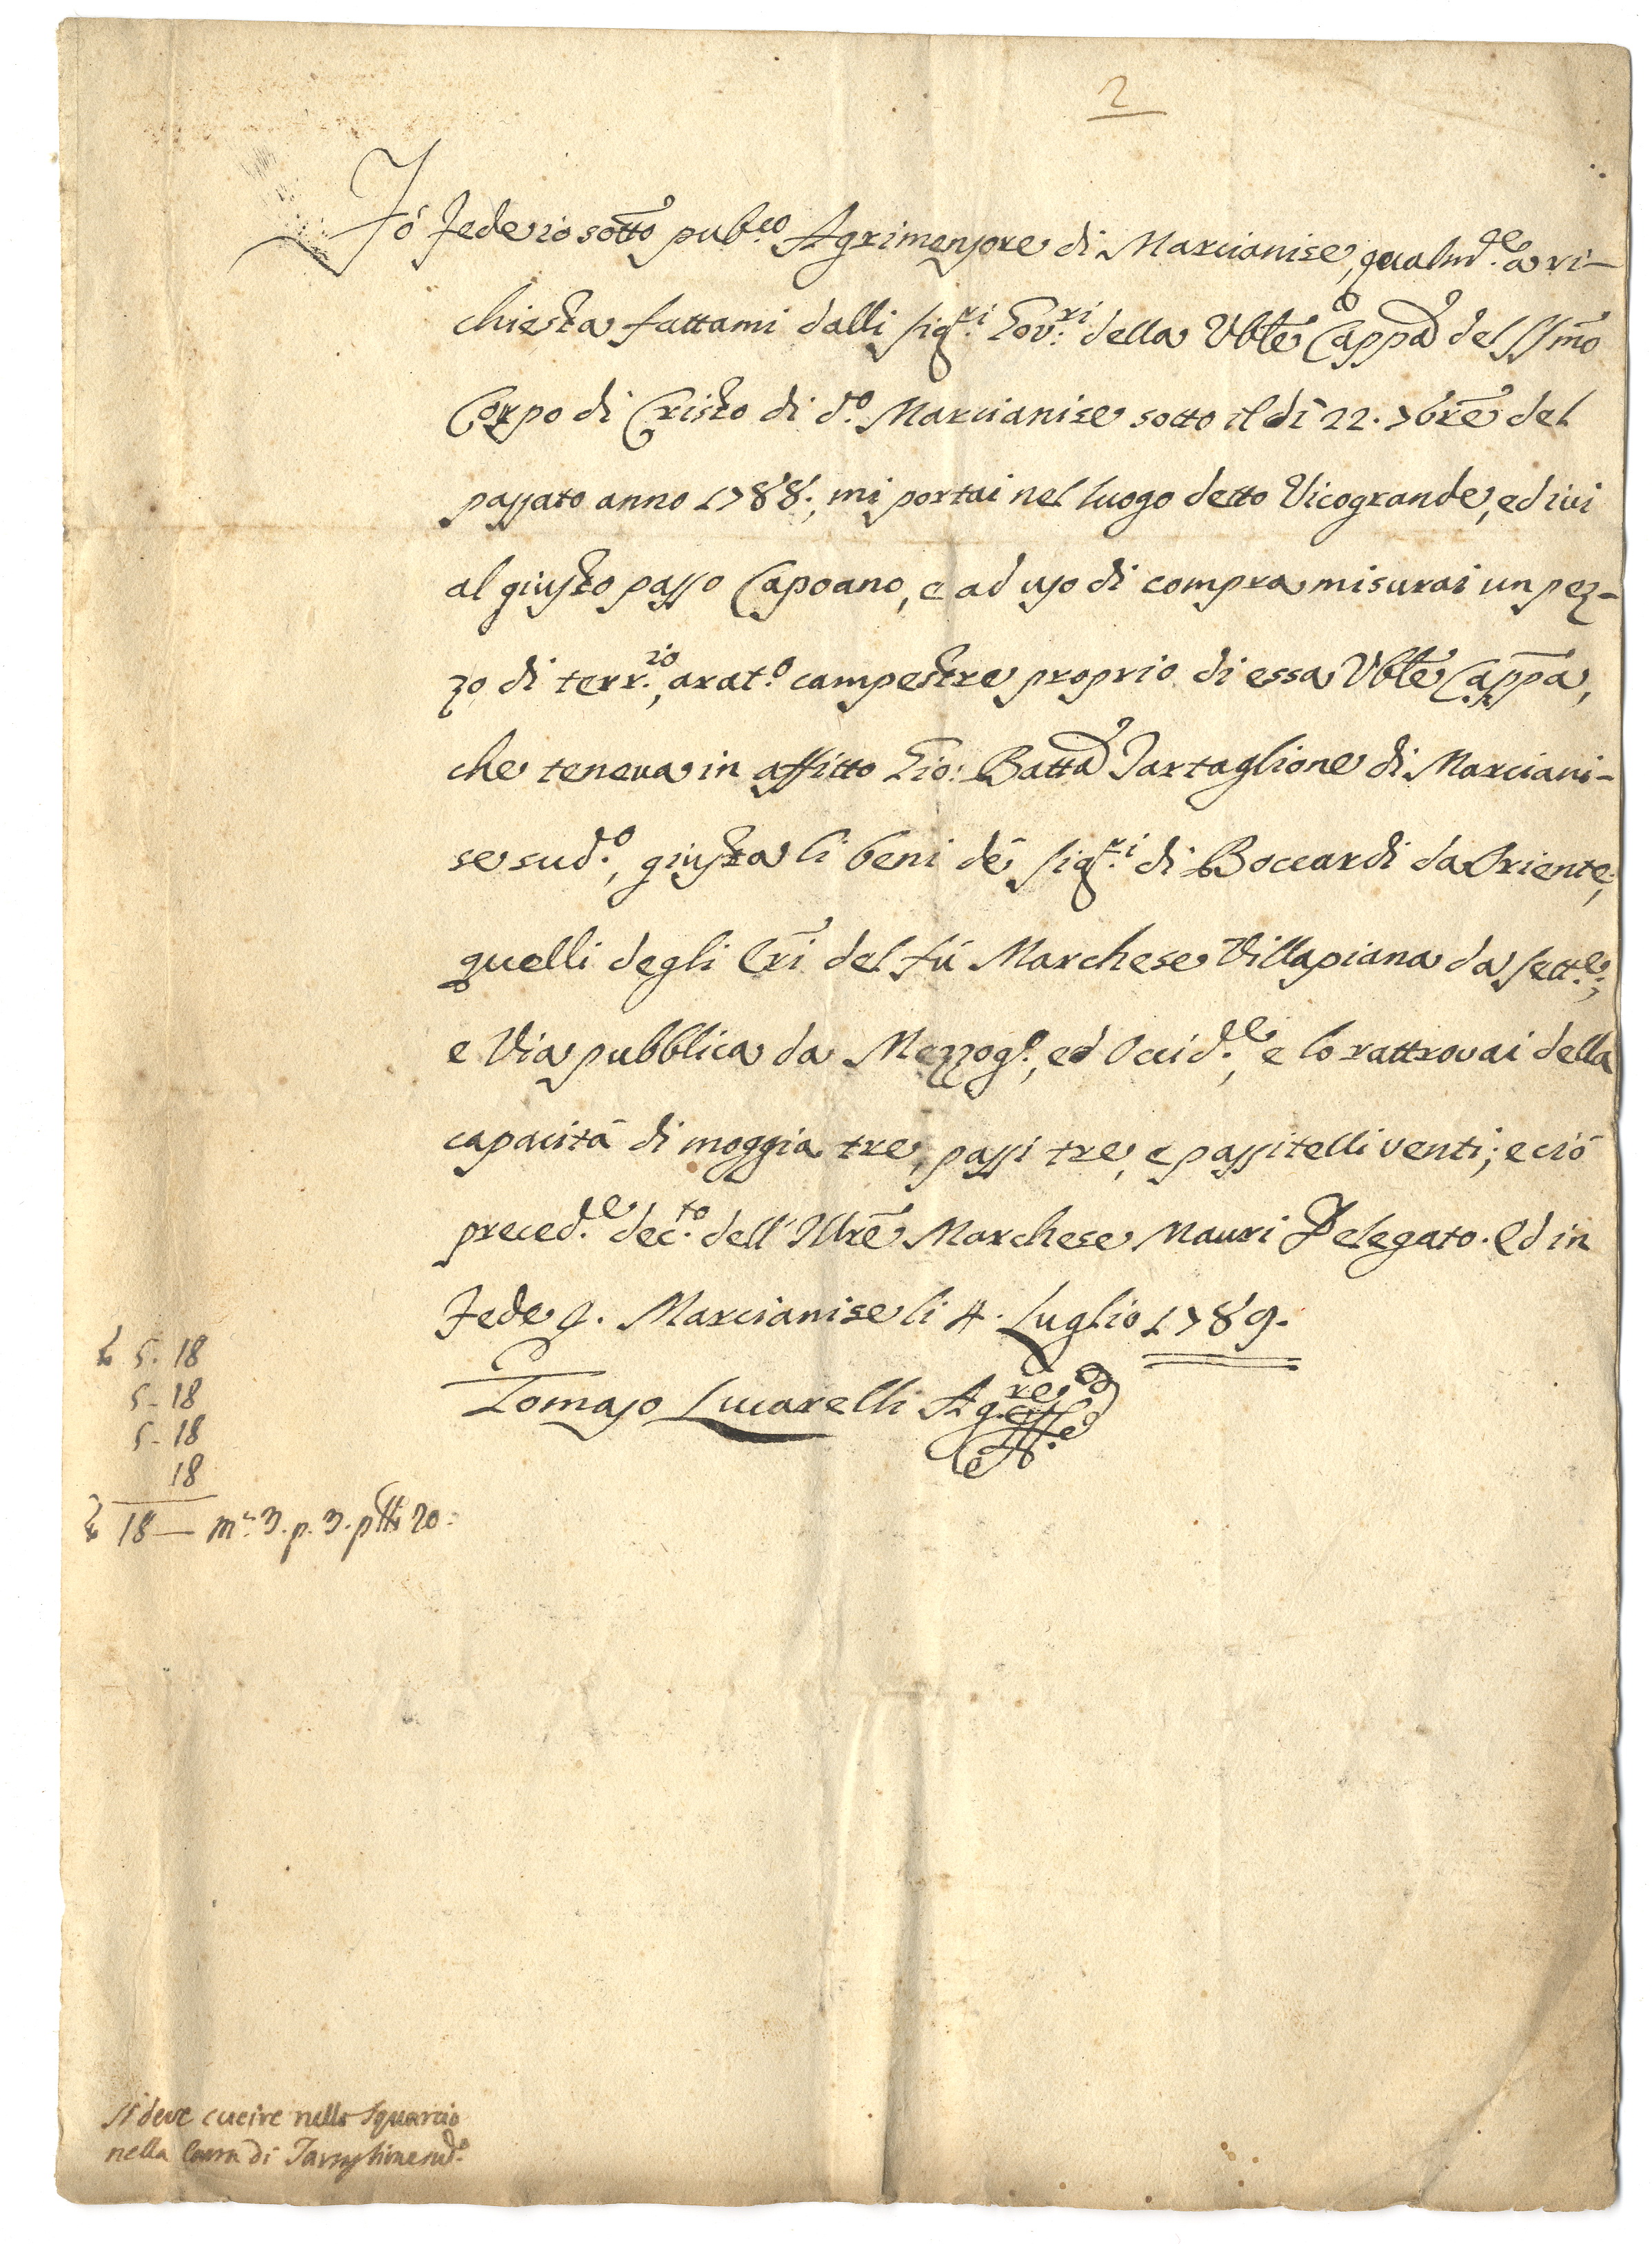 2
Fò fede io sotto pub.co Agrimensore di Marcianise, qualm.te a ri-
chiesta fattami dalli Sig.ri Gov.ri della Vble Cappa del SSmo
Corpo di Cristo di d.o Marcianise sotto il dì 22. 7bre del
passato anno 1788., mi portai nel luogo detto Vicogrande, ed ivi
al giusto passo Capoano, e ad uso di compra misurai un pez-
zo di terr.io, arat.o campestre proprio di essa Vble Cappa,
che teneva in affitto Gio: Batta Tartaglione di Marciani-
se sud.o, giusta li beni de' Sig.ri di Boccardi da Oriente,
quelli degli Eri del fù Marchese Villapiana da Sett.e;
e Via pubblica da Mezzog.o, ed Occid.te, e lo rattrovai della
capacità di moggia tre, passi tre, e passitelli venti; e ciò
preced.e dec.to dell' Illre Marchese Mauri Delegato. Ed in
fede &. Marcianise li 4. Luglio 1789.
Tomaso Lucarelli Ag.re
5. 18
5 - 18
5 - 18
18
18 — m.a 3. p. 3. plli 20.
Si deve cucire nello Squarcio
nella di